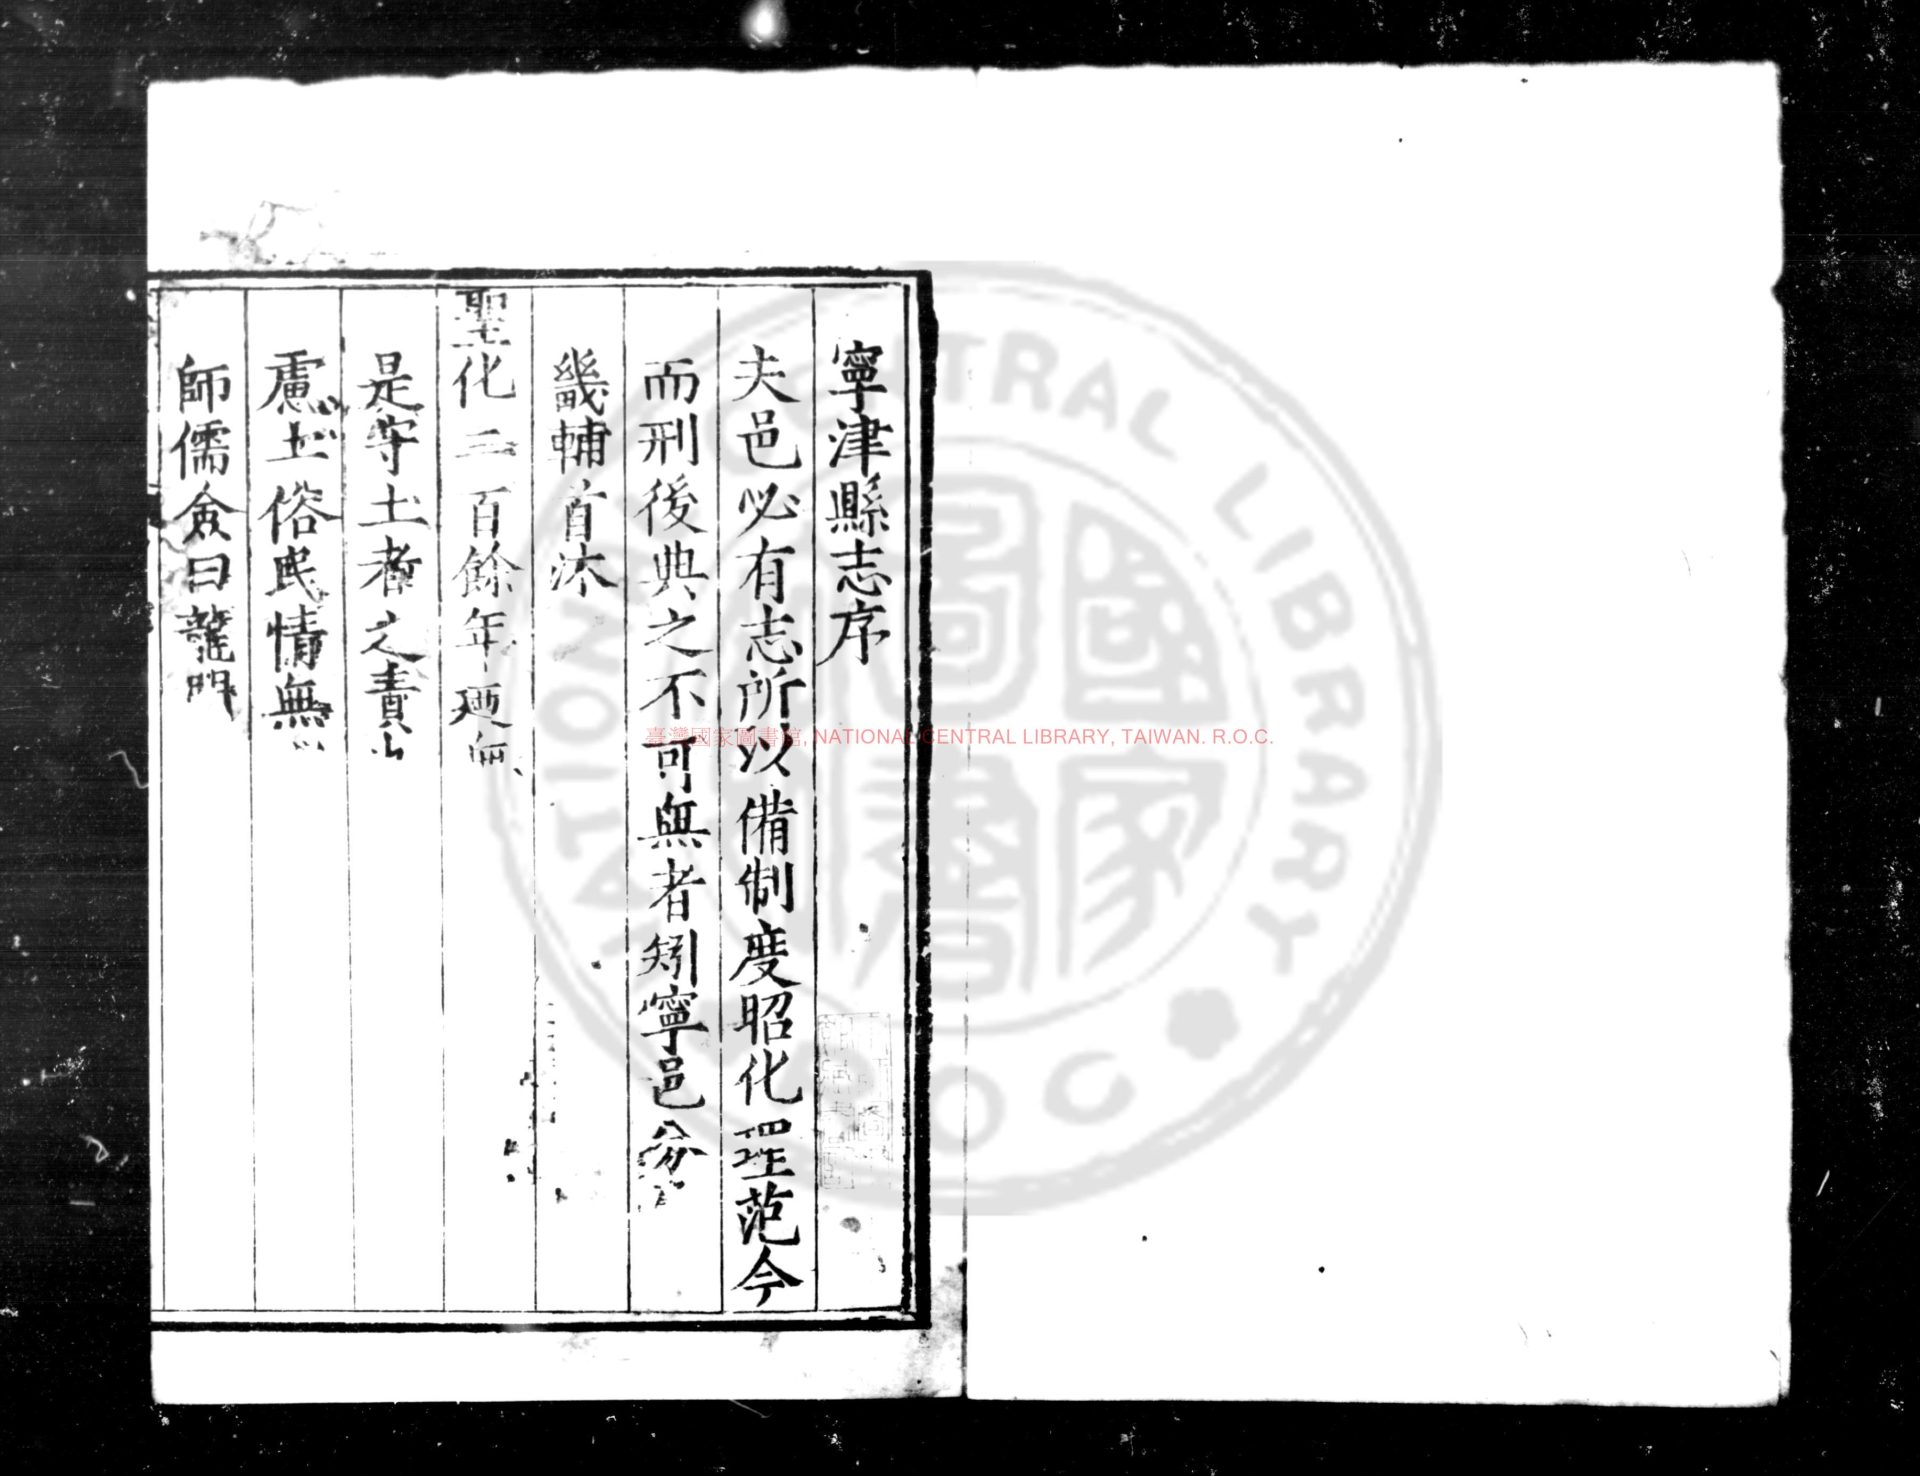 寧津縣志序
夫邑必有志所以備制度昭化理范今
而刑後典之不可無者矧寧邑分
畿輔首沐
聖化二百餘年廼無
是守土者之責
慮土俗民情無
師儒僉曰龍門
臺灣國家圖書館, NATIONAL CENTRAL LIBRARY, TAIWAN. R.O.C.
NATIONAL CENTRAL LIBRARY
ROC
國家圖書